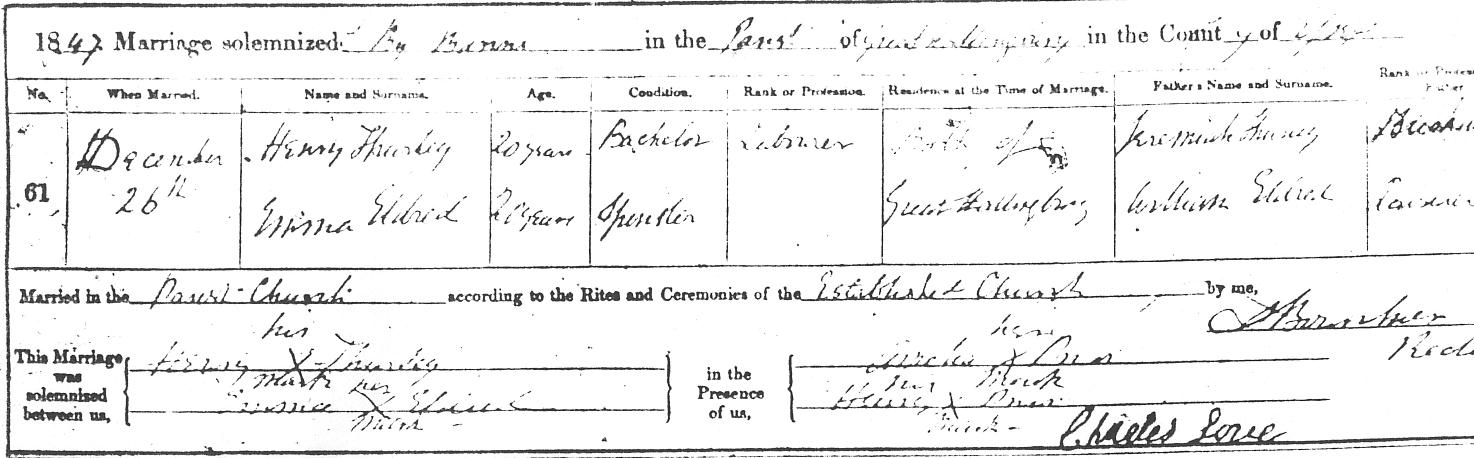 1847 Marriage solemnized By Banns in the Parish of Great Hallingbury in the County of Essex
No. When Married. Name and Surname. Age. Condition. Rank or Profession. Residence at the Time of Marriage. Father's Name and Surname. Rank or Profession
61 December 26th
Henry Thurkey 20 years Bachelor Labourer Both of Jeremiah
Emma Eldred 20 years Spinster Great Hallingbury William Eldred
Married in the Parish Church according to the Rites and Ceremonies of the Established Church by me,
This Marriage was solemnized between us,
his
Henry X Thurkey
mark her
Emma X Eldred
mark
in the Presence of us,
her
X
his Mark
X
mark
Charles Love